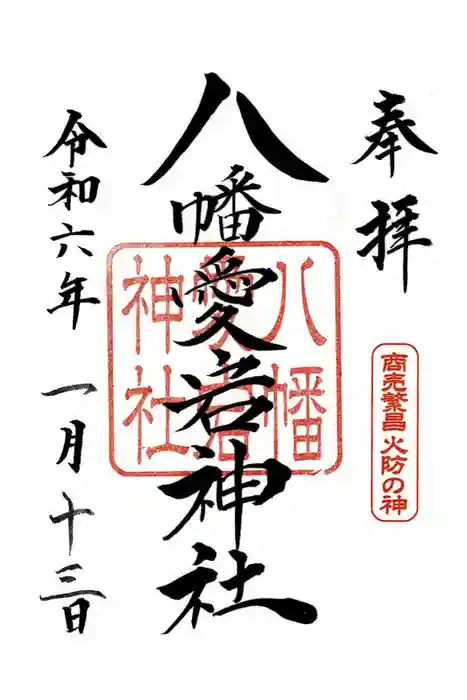 奉拝
商売繁昌 火防の神
八幡愛宕神社
八幡
愛宕
神社
令和六年 一月十三日